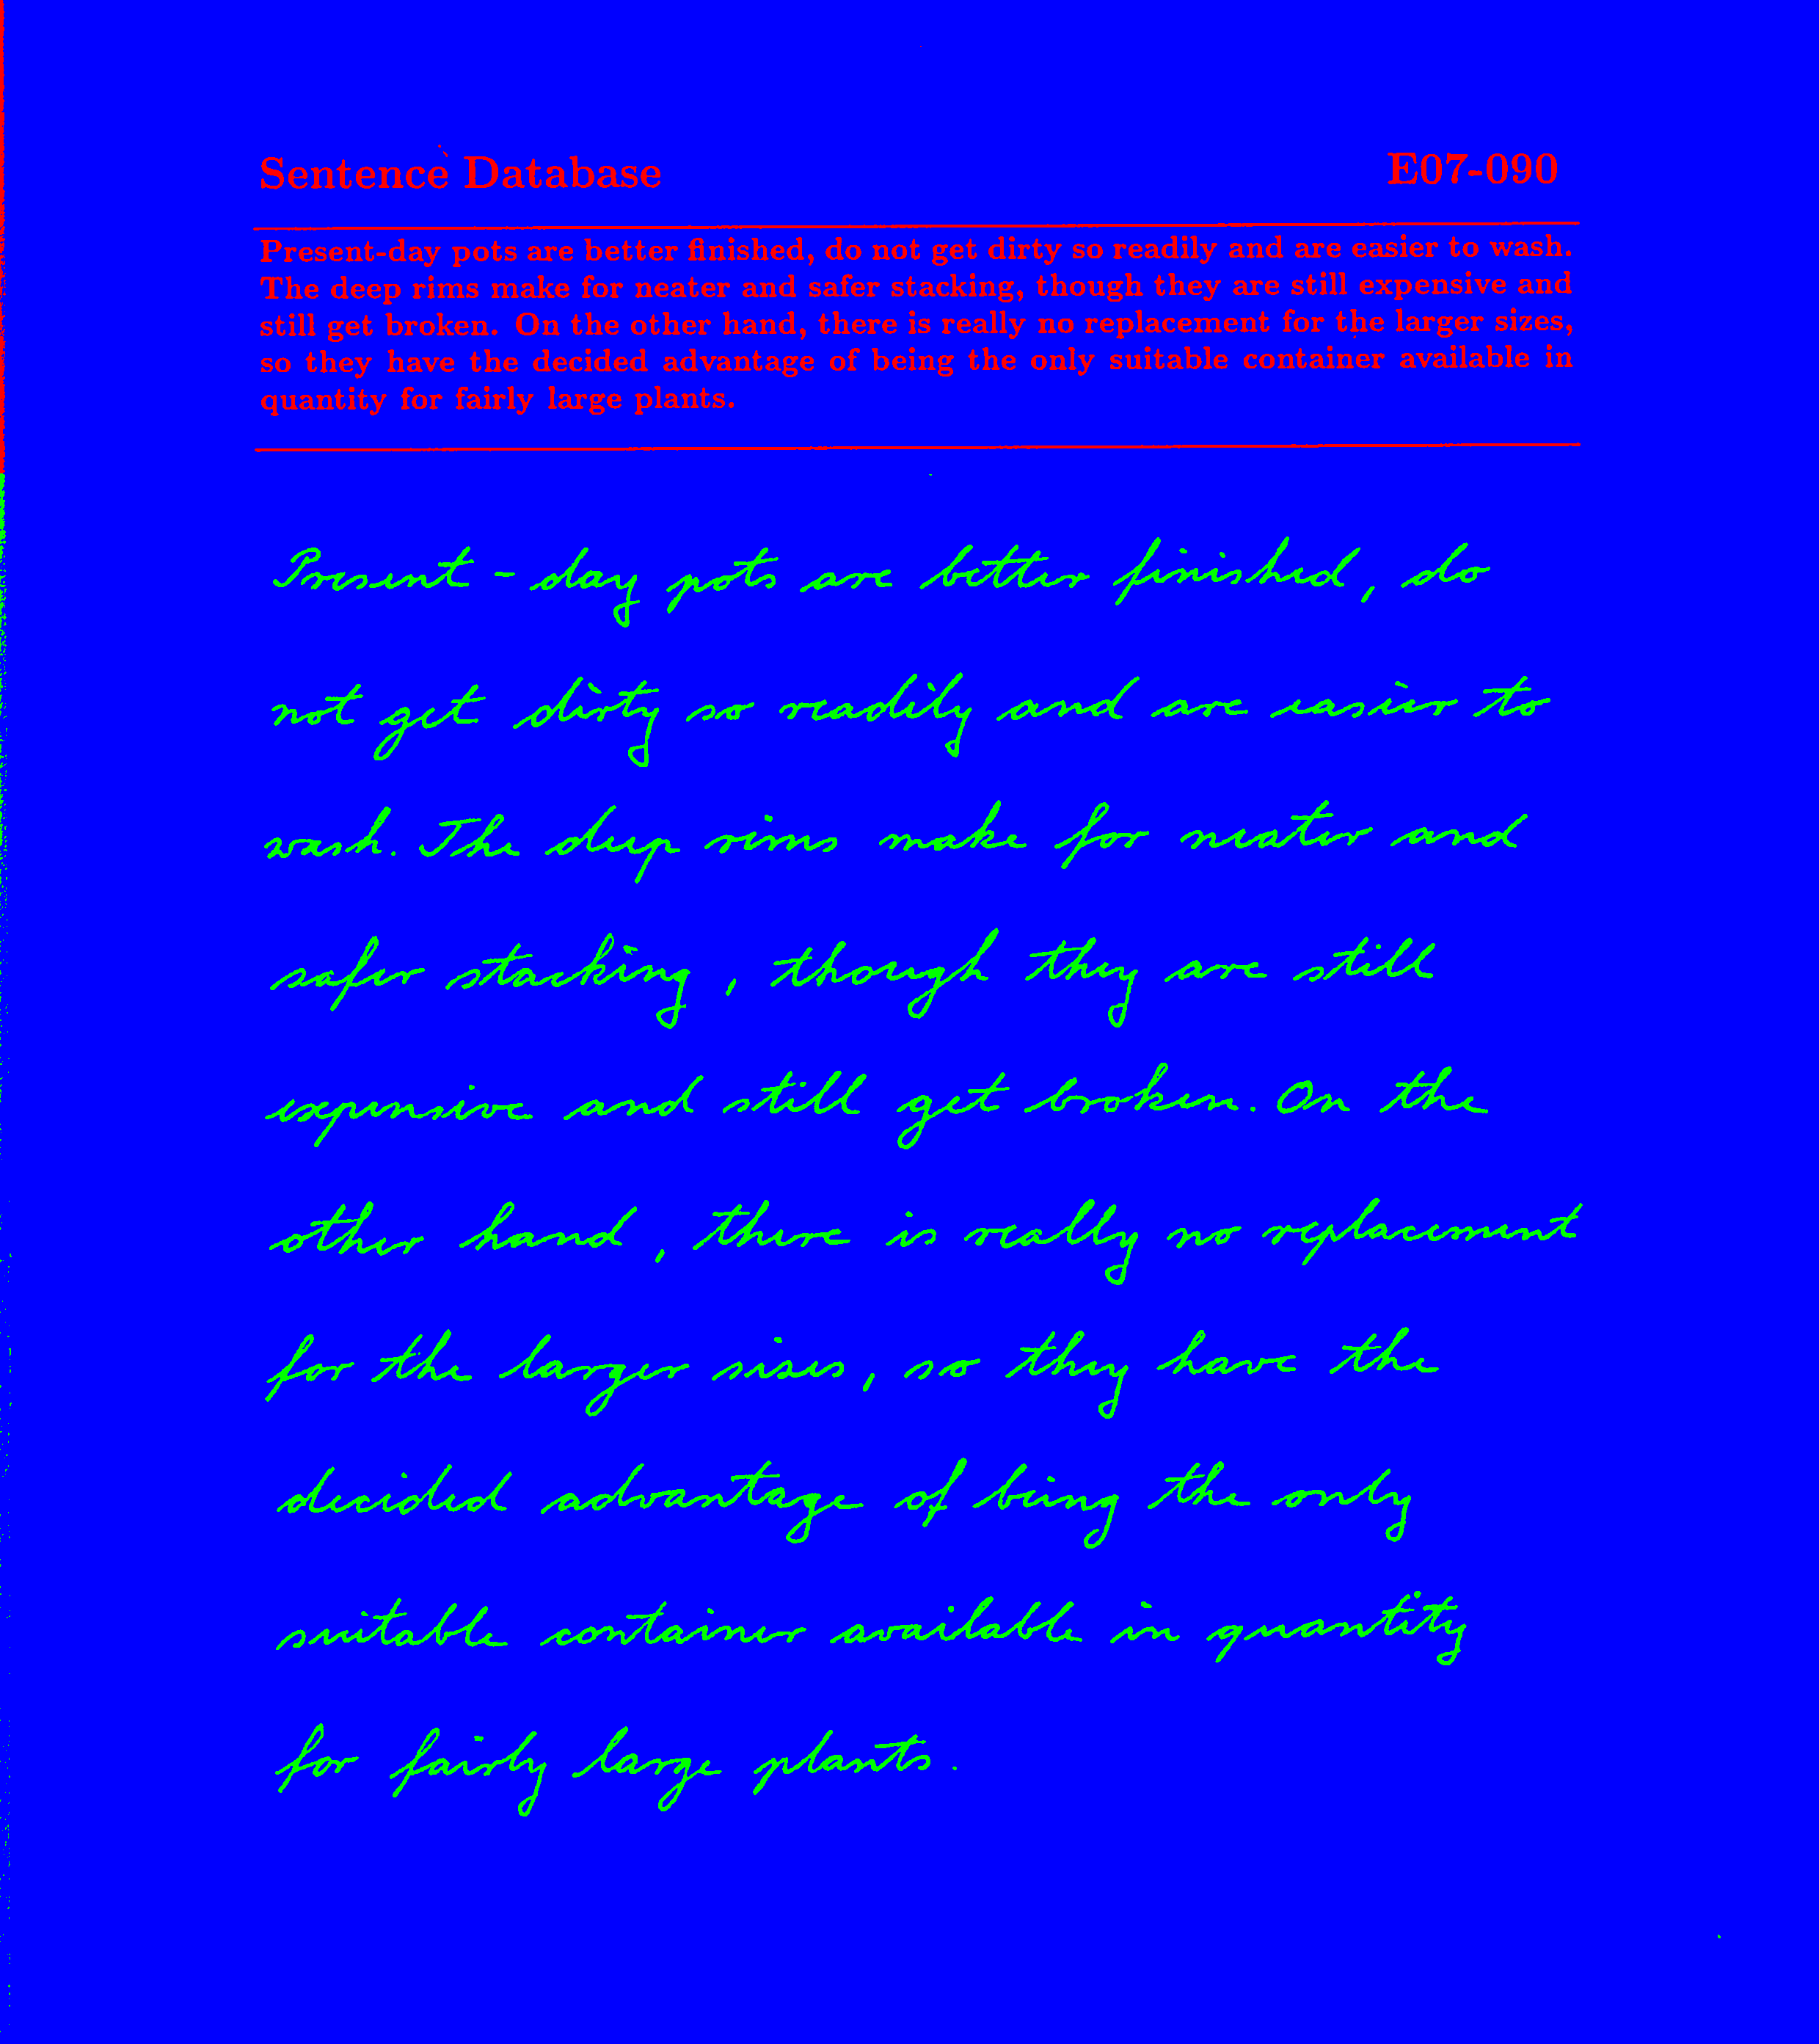 Sentence Database E07-090
Present-day pots are better finished, do not get dirty so readily and are easier to wash.
The deep rims make for neater and safer stacking, though they are still expensive and
still get broken. On the other hand, there is really no replacement for the larger sizes,
so they have the decided advantage of being the only suitable container available in
quantity for fairly large plants.
Present - day pots are better finished, do
not get dirty so readily and are easier to
wash. The deep rims make for neater and
safer stacking, though they are still
expensive and still get broken. On the
other hand, there is really no replacement
for the larger sizes, so they have the
decided advantage of being the only
suitable container available in quantity
for fairly large plants.